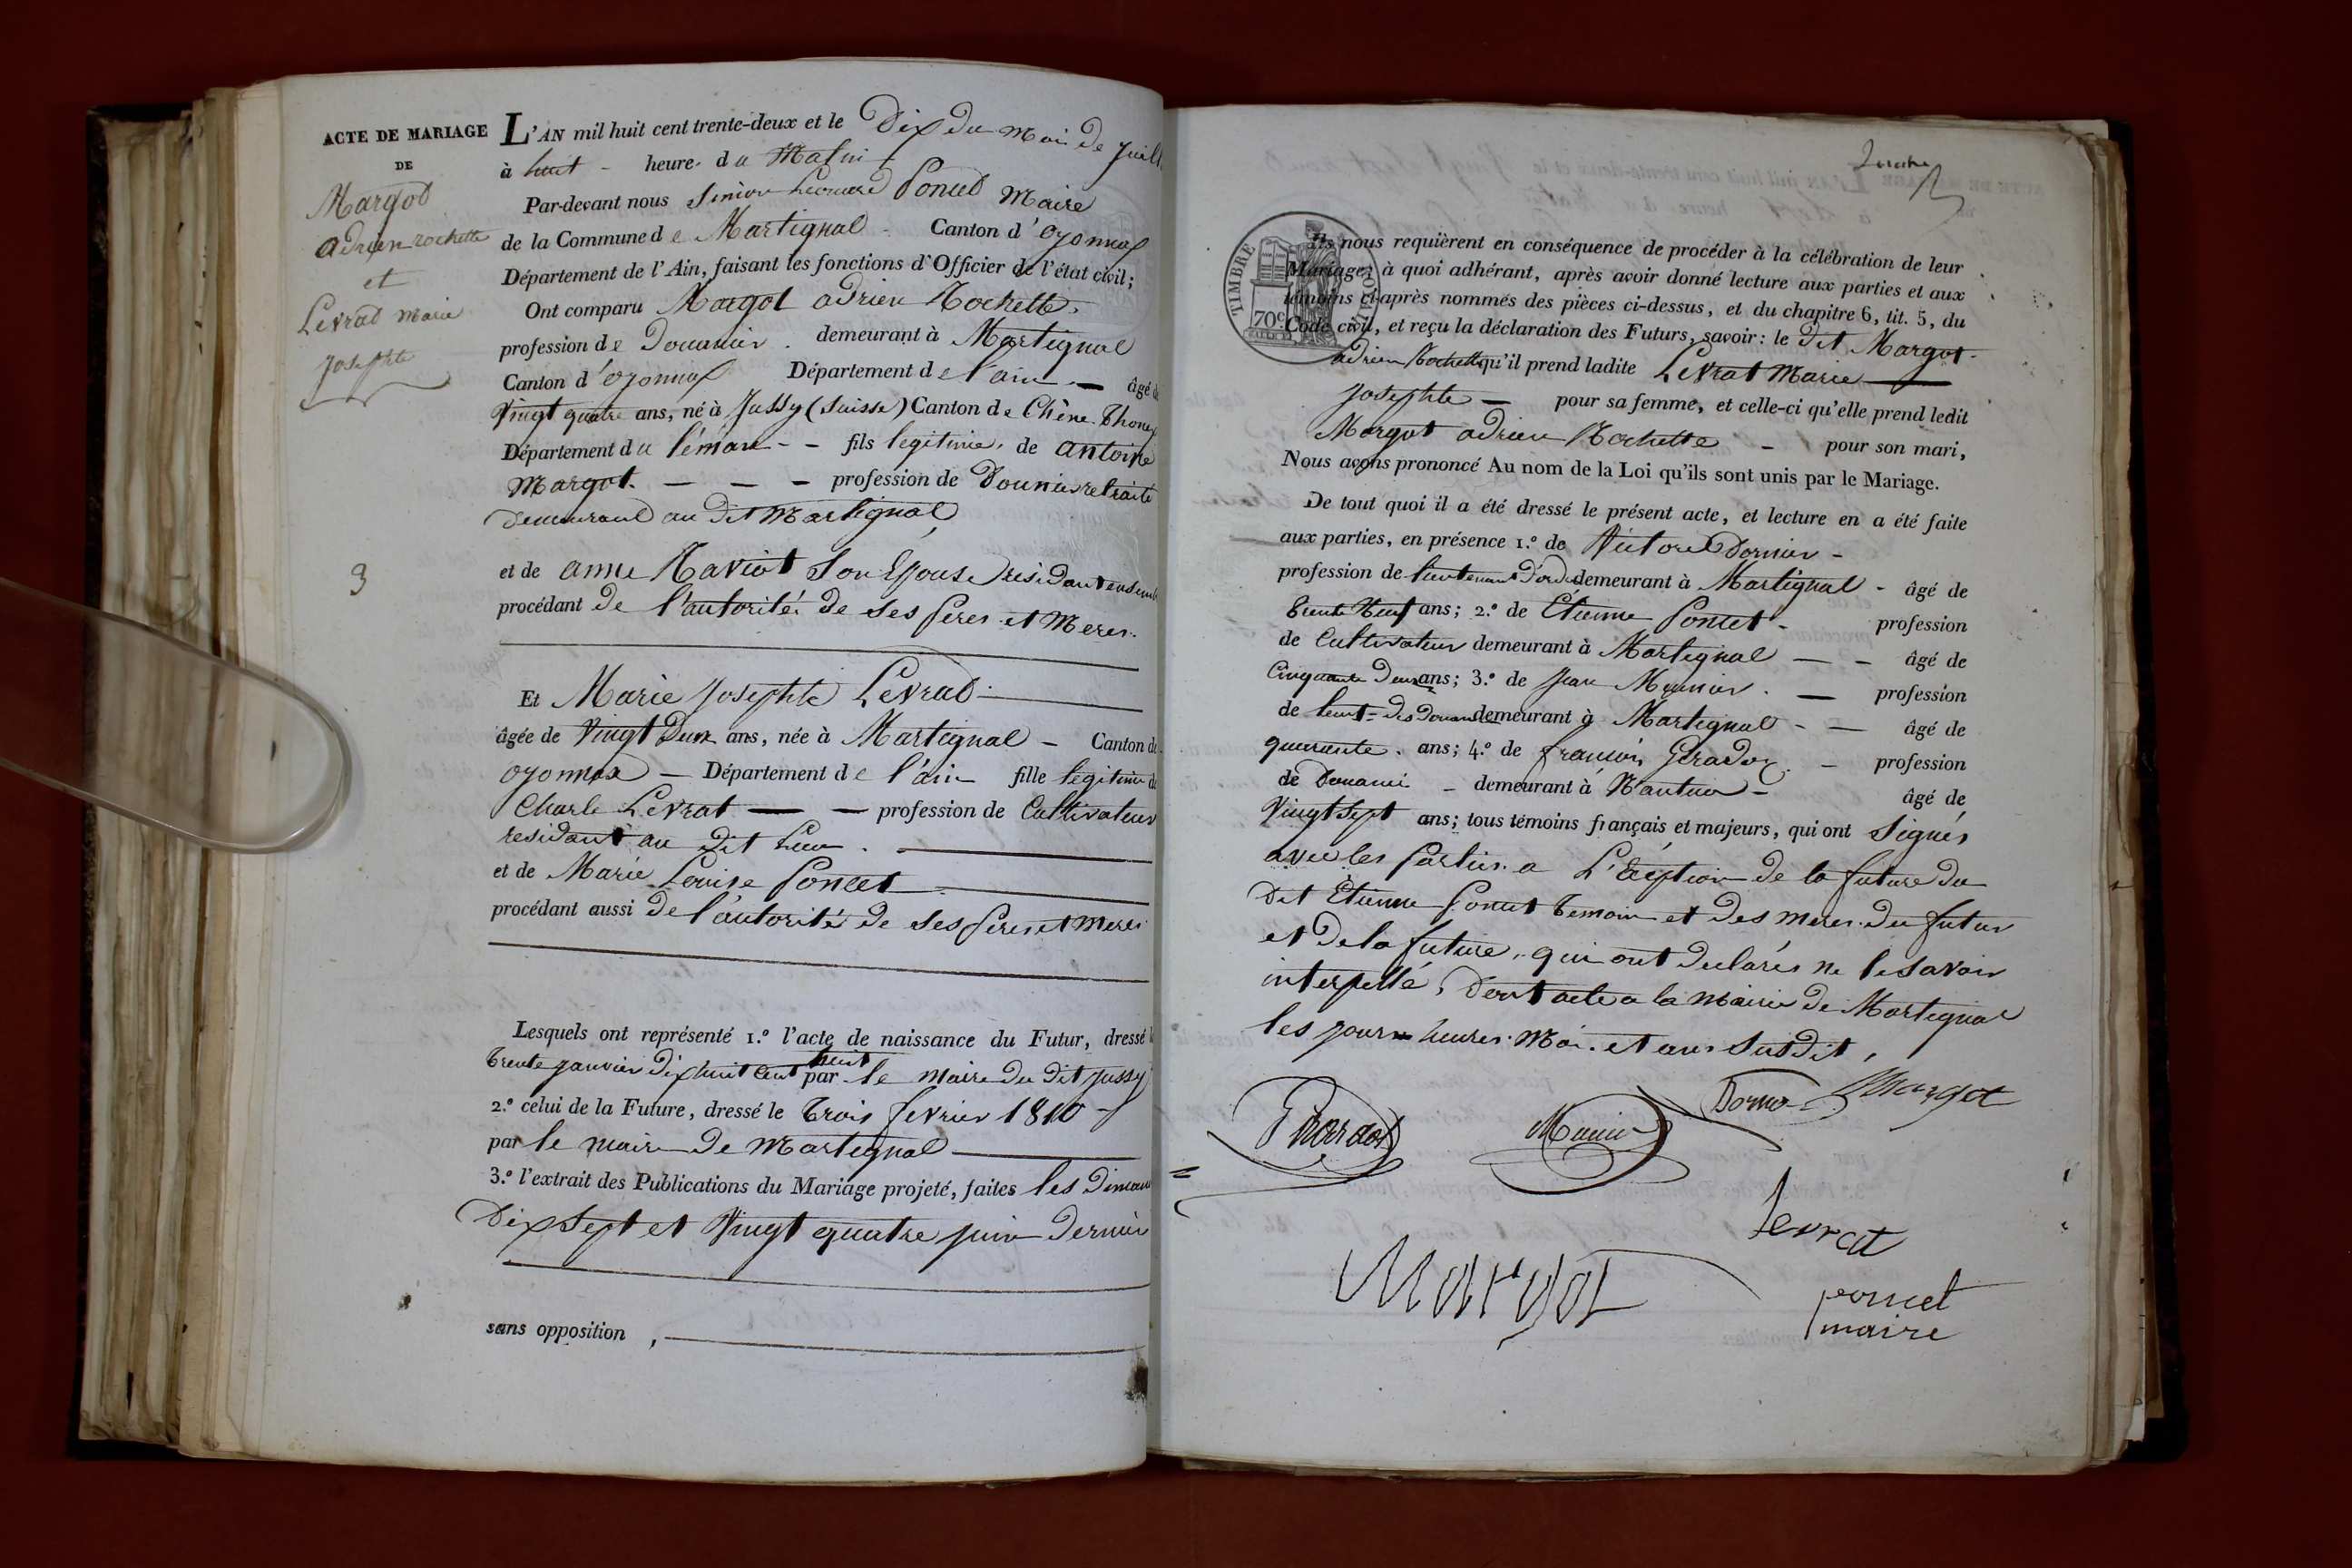 ACTE DE MARIAGE
DE
Margot
adrien rochette
et
Levrat Marie
Josephte
3
L'AN mil huit cent trente-deux et le Dix du Moi de Juill
à huit - heure du Matin
Par-devant nous Simeon Leonard Poncet Maire
de la Commune de Martignal - Canton d'oyonnax
Département de l'Ain, faisant les fonctions d'Officier de l'état civil;
Ont comparu Margot adrien Rochette.
profession de Douanier. demeurant à Martignal
Canton d'oyonnax Département de l'ain — âgé de
Vingt quatre ans, né à Jussy (Suisse) Canton de Chène Thonex
Département du léman - - fils legitime, de antoine
Margot. — — — profession de Dounier retraite
demeurant au dit Martignal
et de anne Raviot son Epouse residant ensemb
procédant de l'autorité de ses peres et Meres.
Et Marie Josephte Levrat.
âgée de Vingt Deux ans, née à Martignal - Canton de
oyonnax — Département de l'ain fille legitime de
Charle Levrat — — profession de Cultivateur
residant au dit lieu.
et de Marie Louise Poncet
procédant aussi de l'autorité de ses peres et Meres
Lesquels ont représenté 1.º l'acte de naissance du Futur, dressé le
huit
trente janvier Dix huit Cent par le maire du dit Jussy
2.º celui de la Future, dressé le trois fevrier 1810 -
par le maire de Martignal
3.º l'extrait des Publications du Mariage projeté, faites les Diman
Dix sept et Vingt quatre juin dernier
sans opposition,
TIMBRE
70c
Ils nous requièrent en conséquence de procéder à la célébration de leur
Mariage; à quoi adhérant, après avoir donné lecture aux parties et aux
témoins ci-après nommés des pièces ci-dessus, et du chapitre 6, tit. 5, du
Code civil, et reçu la déclaration des Futurs, savoir: le dit Margot.
adrien Rochette qu'il prend ladite Levrat Marie
Josephte — pour sa femme, et celle-ci qu'elle prend ledit
Margot adrien Rochette - pour son mari,
Nous avons prononcé Au nom de la Loi qu'ils sont unis par le Mariage.
De tout quoi il a été dressé le présent acte, et lecture en a été faite
aux parties, en présence 1.º de Victore Dornier -
profession de lieutenant d'ordre demeurant à Martignal - âgé de
trente Neuf ans; 2.º de Étienne Poncet - profession
de Cultivateur demeurant à Martignal — - âgé de
Cinquante Deux ans; 3.º de Jean Meunier. — profession
de lieut= des Douanes demeurant à Martignal - — âgé de
quarante. ans; 4.º de francois - profession
de Douanié - demeurant à Nantua - âgé de
Vingt Sept ans; tous témoins français et majeurs, qui ont Signés
avec les parties. a L'éxeption de la future du
dit Étienne Poncet temoin et des meres du futur
et de la future, qui ont declarés ne le savoir
interpellé, dont acte a la Mairie de Martignal
les jour heures Moi. et ans Susdit,
Margot
Levrat
Margot
poncet
maire